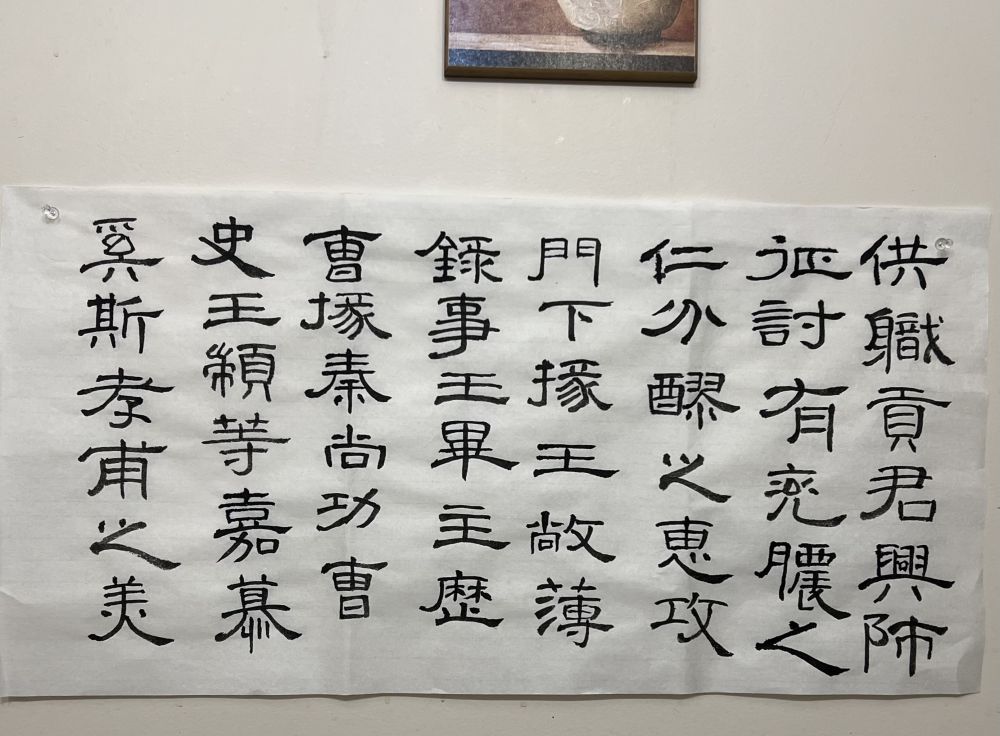 供職貢君興師
征討有兖膿之
仁分醪之惠攻
門下掾王敞薄
録事王畢主歷
曹掾秦尚功曹
史王顓等嘉慕
奚斯考甫之美